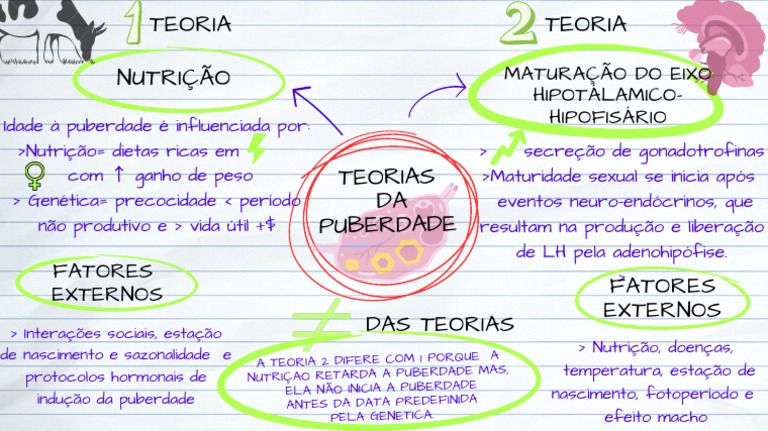 1 TEORIA
NUTRIÇÃO
Idade à puberdade é influenciada por:
>Nutrição= dietas ricas em
com ↑ ganho de peso
> Genética= precocidade < período
não produtivo e > vida útil +$
FATORES
EXTERNOS
> Interações sociais, estação
de nascimento e sazonalidade e
protocolos hormonais de
indução da puberdade
TEORIAS
DA
PUBERDADE
≠ DAS TEORIAS
A TEORIA 2 DIFERE COM 1 PORQUE A
NUTRIÇÃO RETARDA A PUBERDADE MAS,
ELA NÃO INICIA A PUBERDADE
ANTES DA DATA PREDEFINIDA
PELA GENETICA
2 TEORIA
MATURAÇÃO DO EIXO
HIPOTÂLAMICO-
HIPOFISÁRIO
> secreção de gonadotrofinas
>Maturidade sexual se inicia após
eventos neuro-endócrinos, que
resultam na produção e liberação
de LH pela adenohipófise.
>
FATORES
EXTERNOS
> Nutrição, doenças,
temperatura, estação de
nascimento, fotoperíodo e
efeito macho